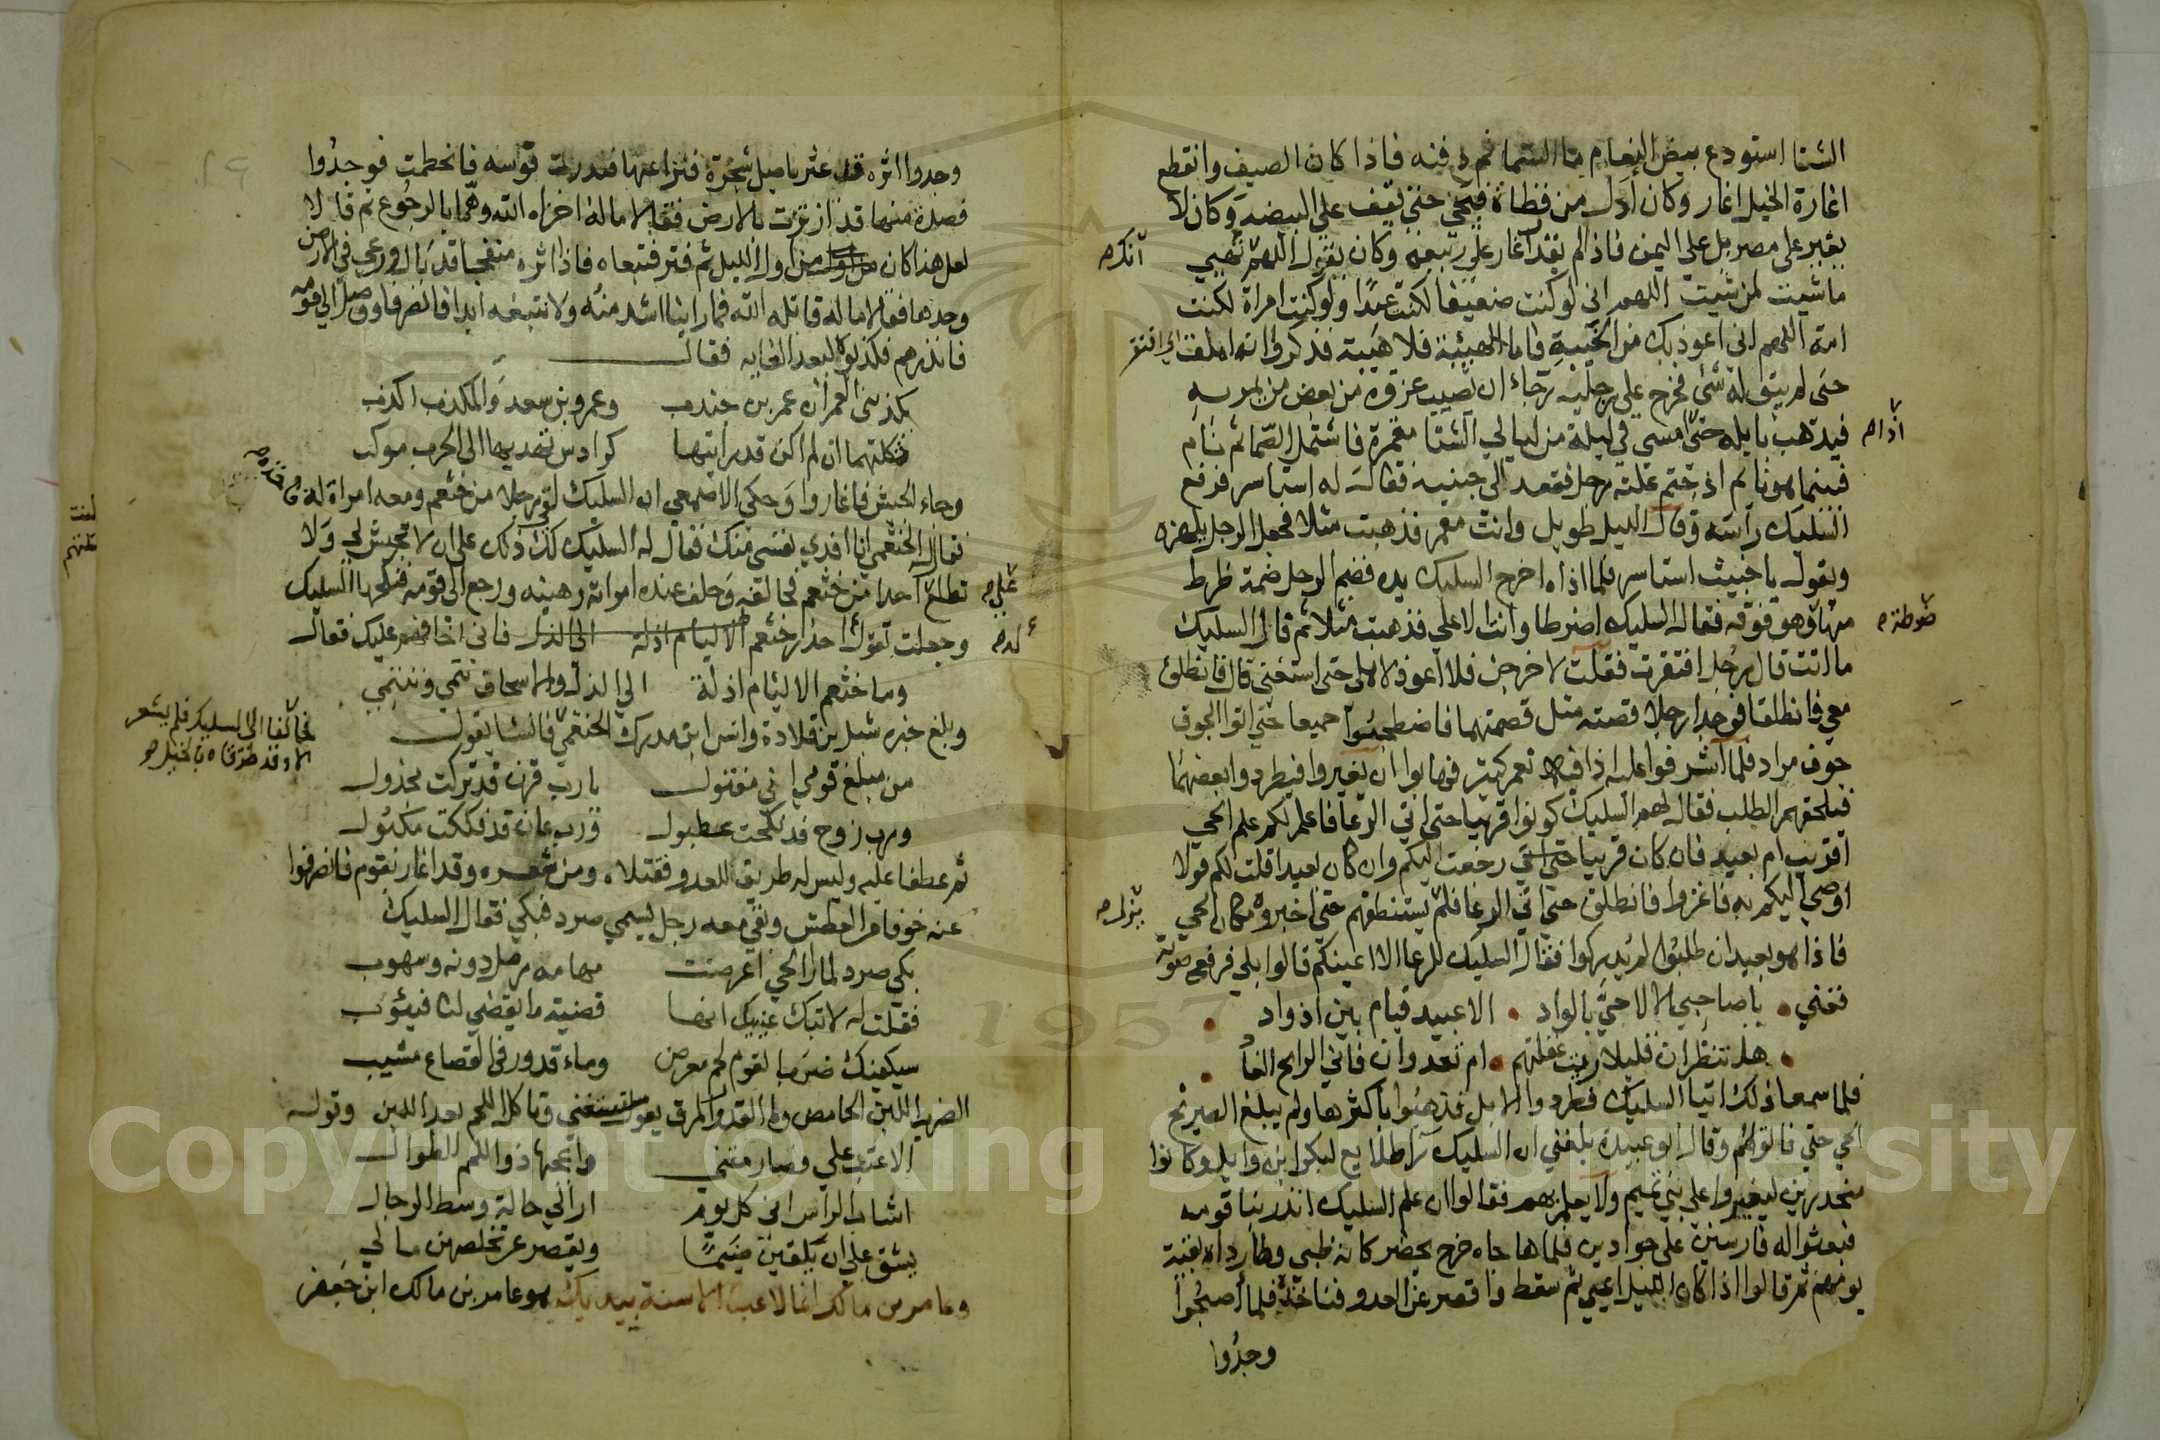 الشتا استودع بيض النعام ما السما ثم دفنه فاذا كان الصيف وانقطع
اغارة الخيل اغار وكان ادل من قطاة فيجي حتى يقف علي البيضة وكان لا
يغير على مضر بل على اليمن فاذا لم يقدر اغار على ربيعه وكان يقول اللهم تهيي
انك
ما شيت لمن شيت اللهم اني لو كنت ضعيفا لكنت عبدا ولو كنت امراة لكنت
امة اللهم اني اعوذ بك من الخيبة فاما الهيبة فلا هيبة فذكروا انه املق اي افتقر
حتى لم يبق له شي فخرج على رجليه رجاء ان يصيب غرة من بعض من يمر به
فيذهب بابله حتى امسى في ليلة من ليالي الشتا مقمرة فاشتمل الصما ثم نام
فبينما هو نائم اذ جثم عليه رجل فقعد الى جنبيه فقال له استاسر فرفع
السليك راسه وقال الليل طويل وانت مقمر فذهبت مثلا فجعل الرجل يلهزه
ويقول يا خبيث استاسر فلما اذاه اخرج السليك يده فضم الرجل ضمة ضرط
منها وهو فوقه فقال السليك اضرطا وانت الاعلي فذهبت مثلا ثم قال السليك
ما انت قال رجل افتقرت فقلت لاخرجن فلا اعود لاهلى حتى استغني قال فانطلق
معي فانطلقا فوجدا رجلا قصته مثل قصتهما فاضطجعوا جميعا حتى اتوا الجوف
جوف مراد فلما اشرفوا عليه اذا فيه نعم كثير فهابوا ان يغيروا فيطردوا بعضها
فيلحقهم الطلب فقال لهم السليك كونوا قريبا حتى اتي الرعا فاعلم لكم علم الحي
اقريب ام بعيد فان كان قريبا رجعت اليكم وان كان بعيدا قلت لكم قولا
اوصي اليكم به فاغزوا فانطلق حتى اتي الرعا فلم يستنطقهم حتى اخبروه مكان الحي
فاذا هو بعيد ان طلبوا لم يدركوا فقال السليك للرعا الا اغنيكم قالوا بلي فرفع صوته
فغني يا صاحبي لا لا حي بالواد الا عبيد قيام بين اذواد
هل تنظران قليلا ريث غفلتهم ام تعدوان فاني الرابح الغاد
فلما سمعا ذلك اتيا السليك فطردوا الابل فذهبوا باكثرها ولم يبلغ الصريخ
الحي حتى فاتوهم وقال ابو عبيدة بلغني ان السليك رآ طلايع لبكر ابن وايل وكانوا
منحدرين ليغيروا علي بني تميم ولا يعلم بهم فقالوا ان علم السليك انذر بنا قومه
فبعثوا له فارسين على جوادين فلما هاجاه خرج يحضر كانه ظبي وطارداه بقية
يومهم ثم قالوا اذا كان الليل اعيي ثم سقط واقصر عن العدو فناخذه فلما اصبحوا
وجدوا
وجدوا اثره قد عثر باصل شجرة فنزا عنها فندرت قوسه فانحطمت فوجدوا
قصدة منها قد ارتزت بالارض فقالا ما له اخزاه الله وهما بالرجوع ثم قالا
لعل هذا كان من اول الليل ثم فتر فتبعاه فاذا اثره متفحجا قد بال ورعي في الارض
وحدها فقالا ما له قاتله الله فما راينا اشد منه ولا نتبعه ابدا فانصرفا ووصل الي قومه
فانذرهم فكذبوه لبعد الغايه فقال
يكذبني العمران عمر بن جندب وعمرو بن سعد والمكذب اكذب
ثكلتهما ان لم اكن قد رايتها كراديس تهديها الى الحرب موكب
وجاء الجيش فاغاروا وحكي الاصمعي ان السليك لقي رجلا من خثعم ومعه امراة له
فقال الخثعمي انا افدي نفسي منك فقال له السليك لك ذلك على ان لا تجيش لي ولا
تطلع احدا من خثعم فحالفه وحلف عنده امراته رهينه ورجع الى قومه فنكحها السليك
وجعلت تقول احذر خثعم فاني اخافهم عليك فقال
وما خثعم الا ليام اذلة الي الذل والاسحاق تنمي وتنتمي
وبلغ خبره شبل بن قلادة وانس ابن مدرك الخثعمي
فخالفا الى السليك فلم يشعر
الا وقد طرقاه بالخيل
فانشا يقول
من مبلغ قومي اني مقتول يا رب قرن قد تركت مجدول
ورب زوج قد نكحت عطبول ورب عان قد فككت مكبول
ثم عطفا عليه وليس له طريق للعدو فقتلاه ومن شعره وقد اغار بقوم فانصرفوا
عنه خوفا من العطش وبقي معه رجل يسمي صرد فبكي فقال السليك
بكي صرد لما را الحي اعرضت مهامه رمل دونه وسهوب
فقلت له لا تبك عينيك انها قضية ما يقضي لنا فيئوب
سيكفيك ضرب القوم لحم معرص وماء قدور في القصاع مشيب
الضريب اللبن الحامض وما القدور المرق يقول ستستغني وتاكل اللحم بعد اللبن وقوله
الا عتبت علي وصارمتني واعجبها ذوو اللمم الطوال
اشاب الراس اني كل يوم ارا لي خالة وسط الرجال
يشق علي ان يلقين ضيما ويعجز عن تخلصهن مالي
وعامر بن مالك انما لاعب الاسنة بيديك هو عامر بن مالك ابن جعفر